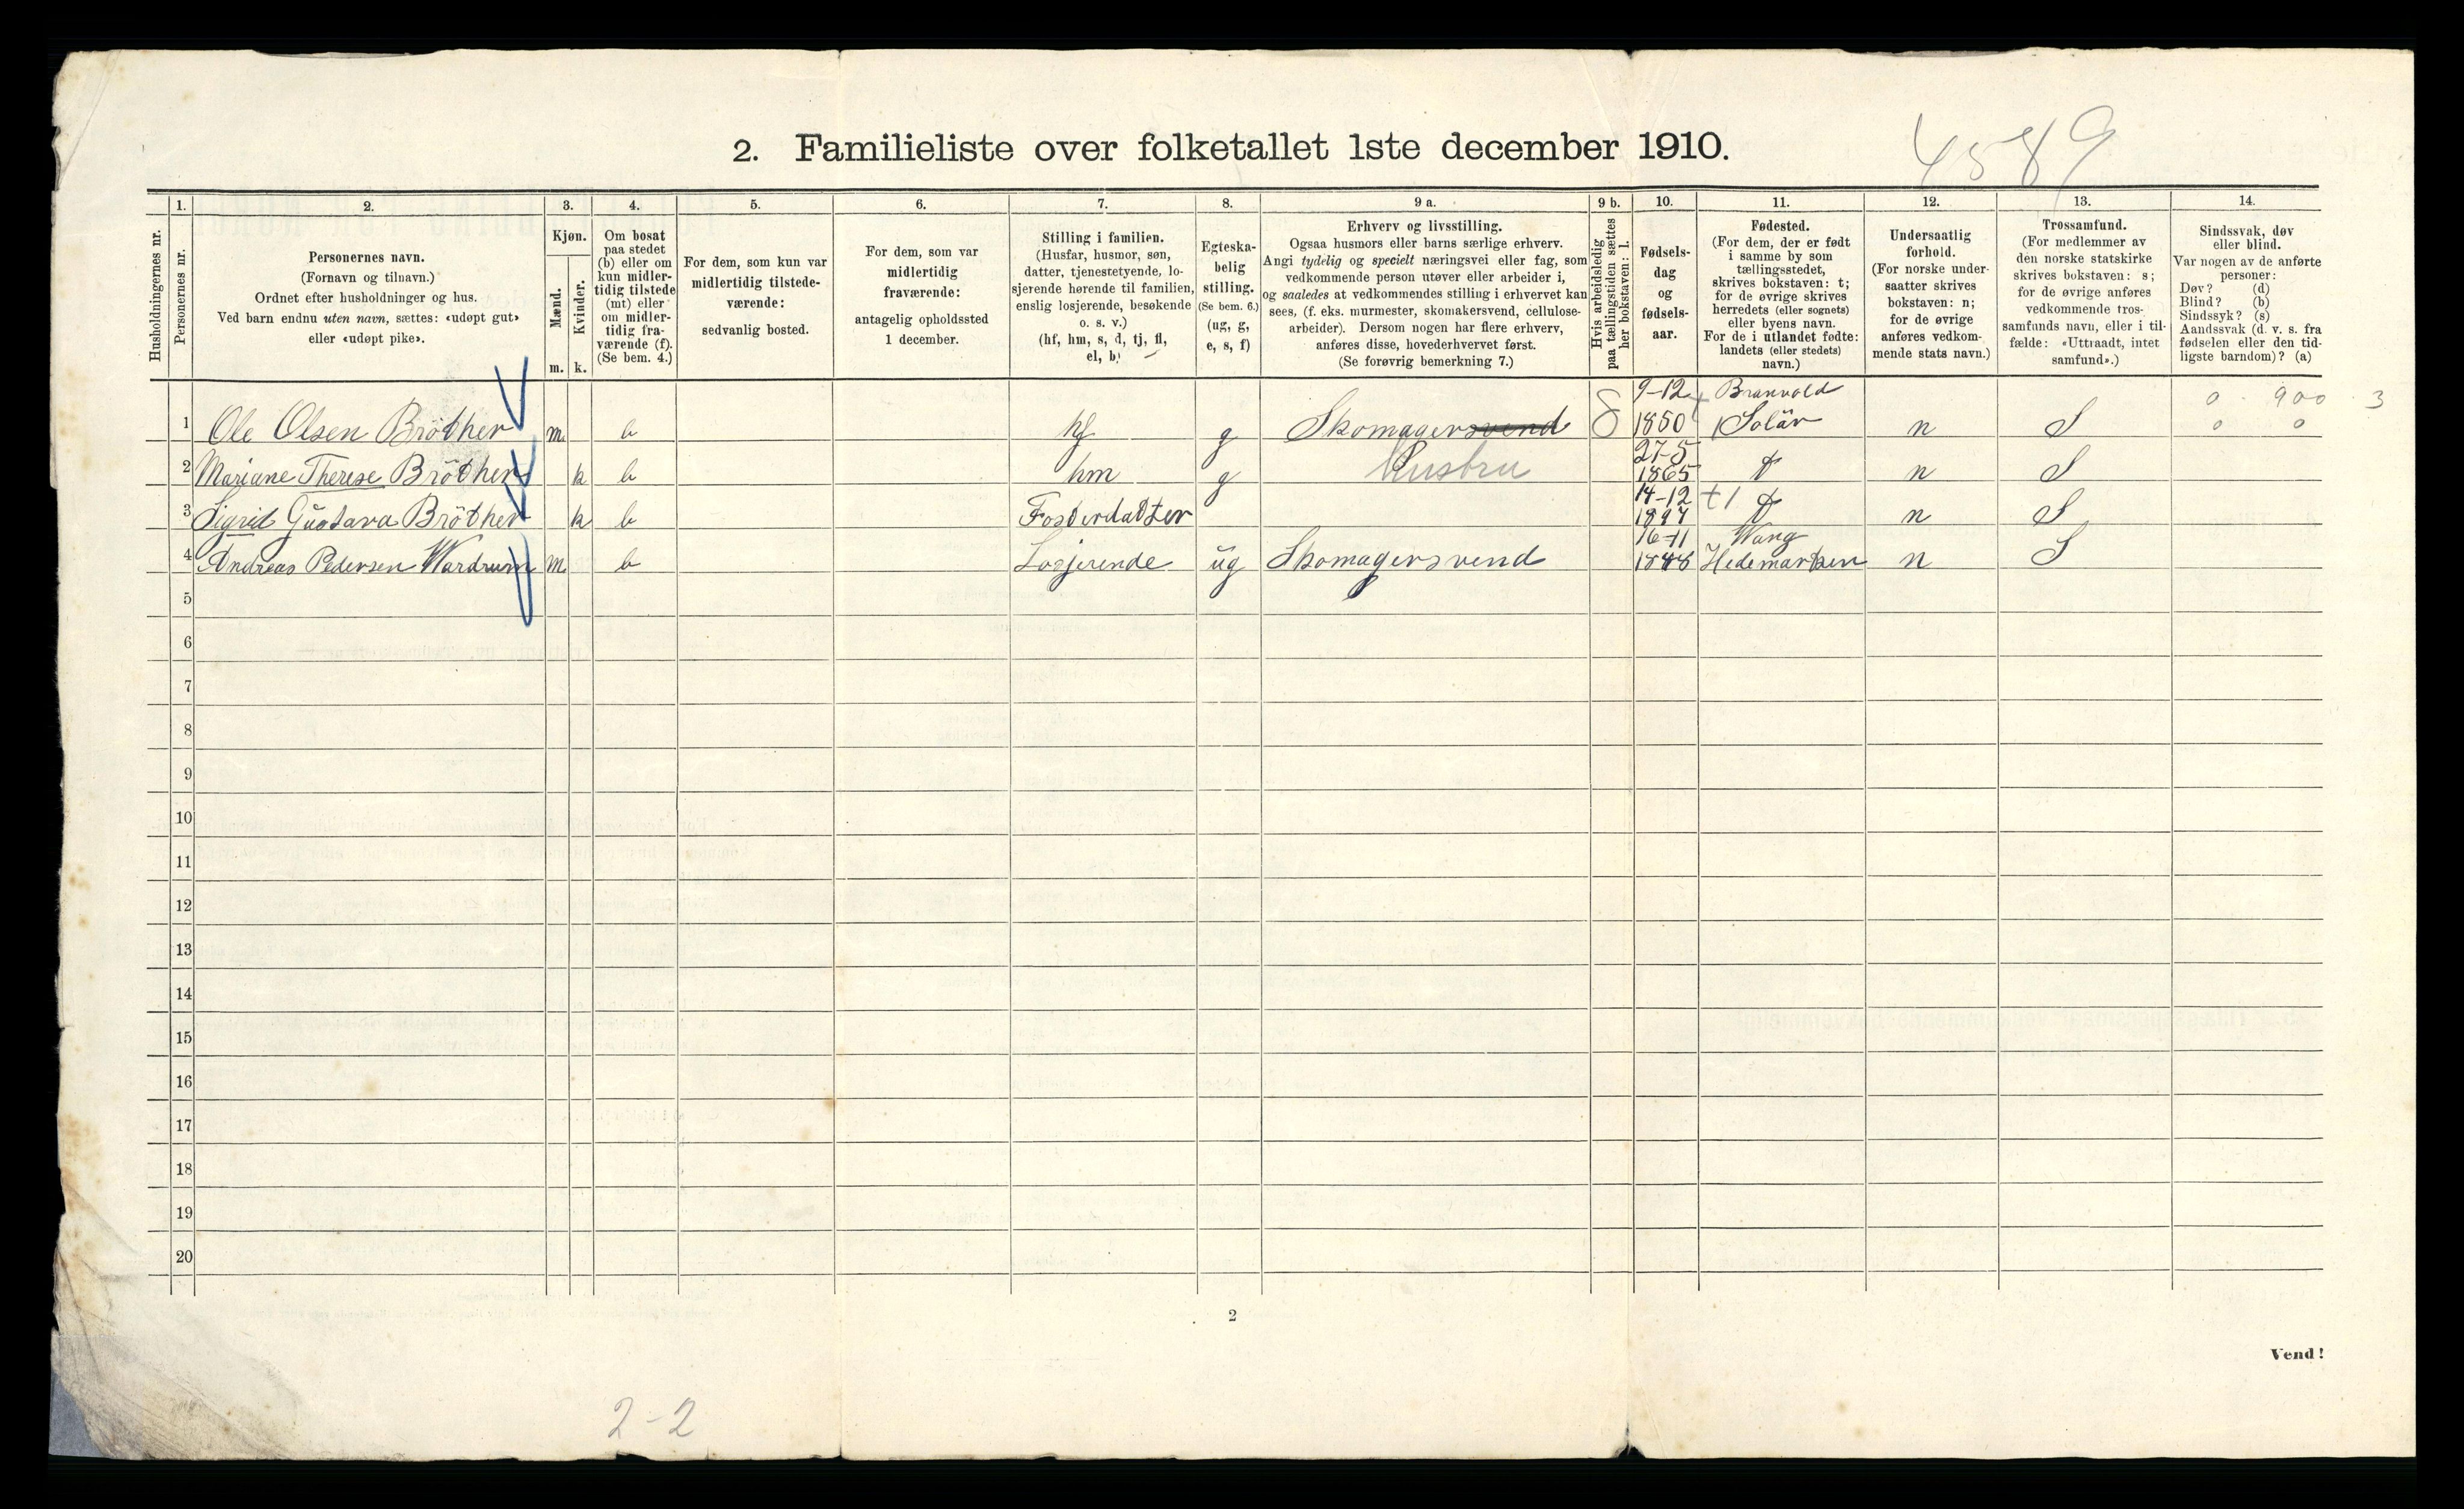 4589
2. Familieliste over folketallet 1ste december 1910.
Husholdningernes nr.
1.
Personernes nr.
2.
Personernes navn.
(Fornavn og tilnavn.)
Ordnet efter husholdninger og hus.
Ved barn endnu uten navn, sættes: «udøpt gut»
eller «udøpt pike».
3.
Kjøn.
Mænd.
Kvinder.
m. k.
4.
Om bosat
paa stedet
(b) eller om
kun midler-
tidig tilstede
(mt) eller
om midler-
tidig fra-
værende (f).
(Se bem. 4.)
5.
For dem, som kun var
midlertidig tilstede-
værende:
sedvanlig bosted.
6.
For dem, som var
midlertidig
fraværende:
antagelig opholdssted
1 december.
7.
Stilling i familien.
(Husfar, husmor, søn,
datter, tjenestetyende, lo-
sjerende hørende til familien,
enslig losjerende, besøkende
o. s. v.)
(hf, hm, s, d, tj, fl,
el, b)
8.
Egteska-
belig
stilling.
(Se bem. 6.)
(ug, g,
e, s, f)
9 a.
Erhverv og livsstilling.
Ogsaa husmors eller barns særlige erhverv.
Angi tydelig og specielt næringsvei eller fag, som
vedkommende person utøver eller arbeider i,
og saaledes at vedkommendes stilling i erhvervet kan
sees, (f. eks. murmester, skomakersvend, cellulose-
arbeider). Dersom nogen har flere erhverv,
anføres disse, hovederhvervet først.
(Se forøvrig bemerkning 7.)
9 b.
Hvis arbeidsledig
paa tællingstiden sættes
her bokstaven: l.
10.
Fødsels-
dag
og
fødsels-
aar.
11.
Fødested.
(For dem, der er født
i samme by som
tællingsstedet,
skrives bokstaven: t;
for de øvrige skrives
herredets (eller sognets)
eller byens navn.
For de i utlandet fødte:
landets (eller stedets)
navn.)
12.
Undersaatlig
forhold.
(For norske under-
saatter skrives
bokstaven: n;
for de øvrige
anføres vedkom-
mende stats navn.)
13.
Trossamfund.
(For medlemmer av
den norske statskirke
skrives bokstaven: s;
for de øvrige anføres
vedkommende tros-
samfunds navn, eller i til-
fælde: «Uttraadt, intet
samfund».)
14.
Sindssvak, døv
eller blind.
Var nogen av de anførte
personer:
Døv? (d)
Blind? (b)
Sindssyk? (s)
Aandssvak (d. v. s. fra
fødselen eller den tid-
ligste barndom)? (a)
1 Ole Olsen Bröther m. b hf g Skomagersvend 8 9-12 1850 Branvold Solär n S 0 . 900 . 3
0 0
2 Mariane Therese Bröther k b hm g Husbru 27-5 1865 t n S
3 Sigrid Gustava Bröther k b Fosterdatter 14-12 1897 t1 t n S
4 Andreas Pedersen Wardrum m b Losjerende ug Skomagersvend 16-11 1848 Wang Hedemarken n S
5
6
7
8
9
10
11
12
13
14
15
16
17
18
19
20
2
Vend!
2-2